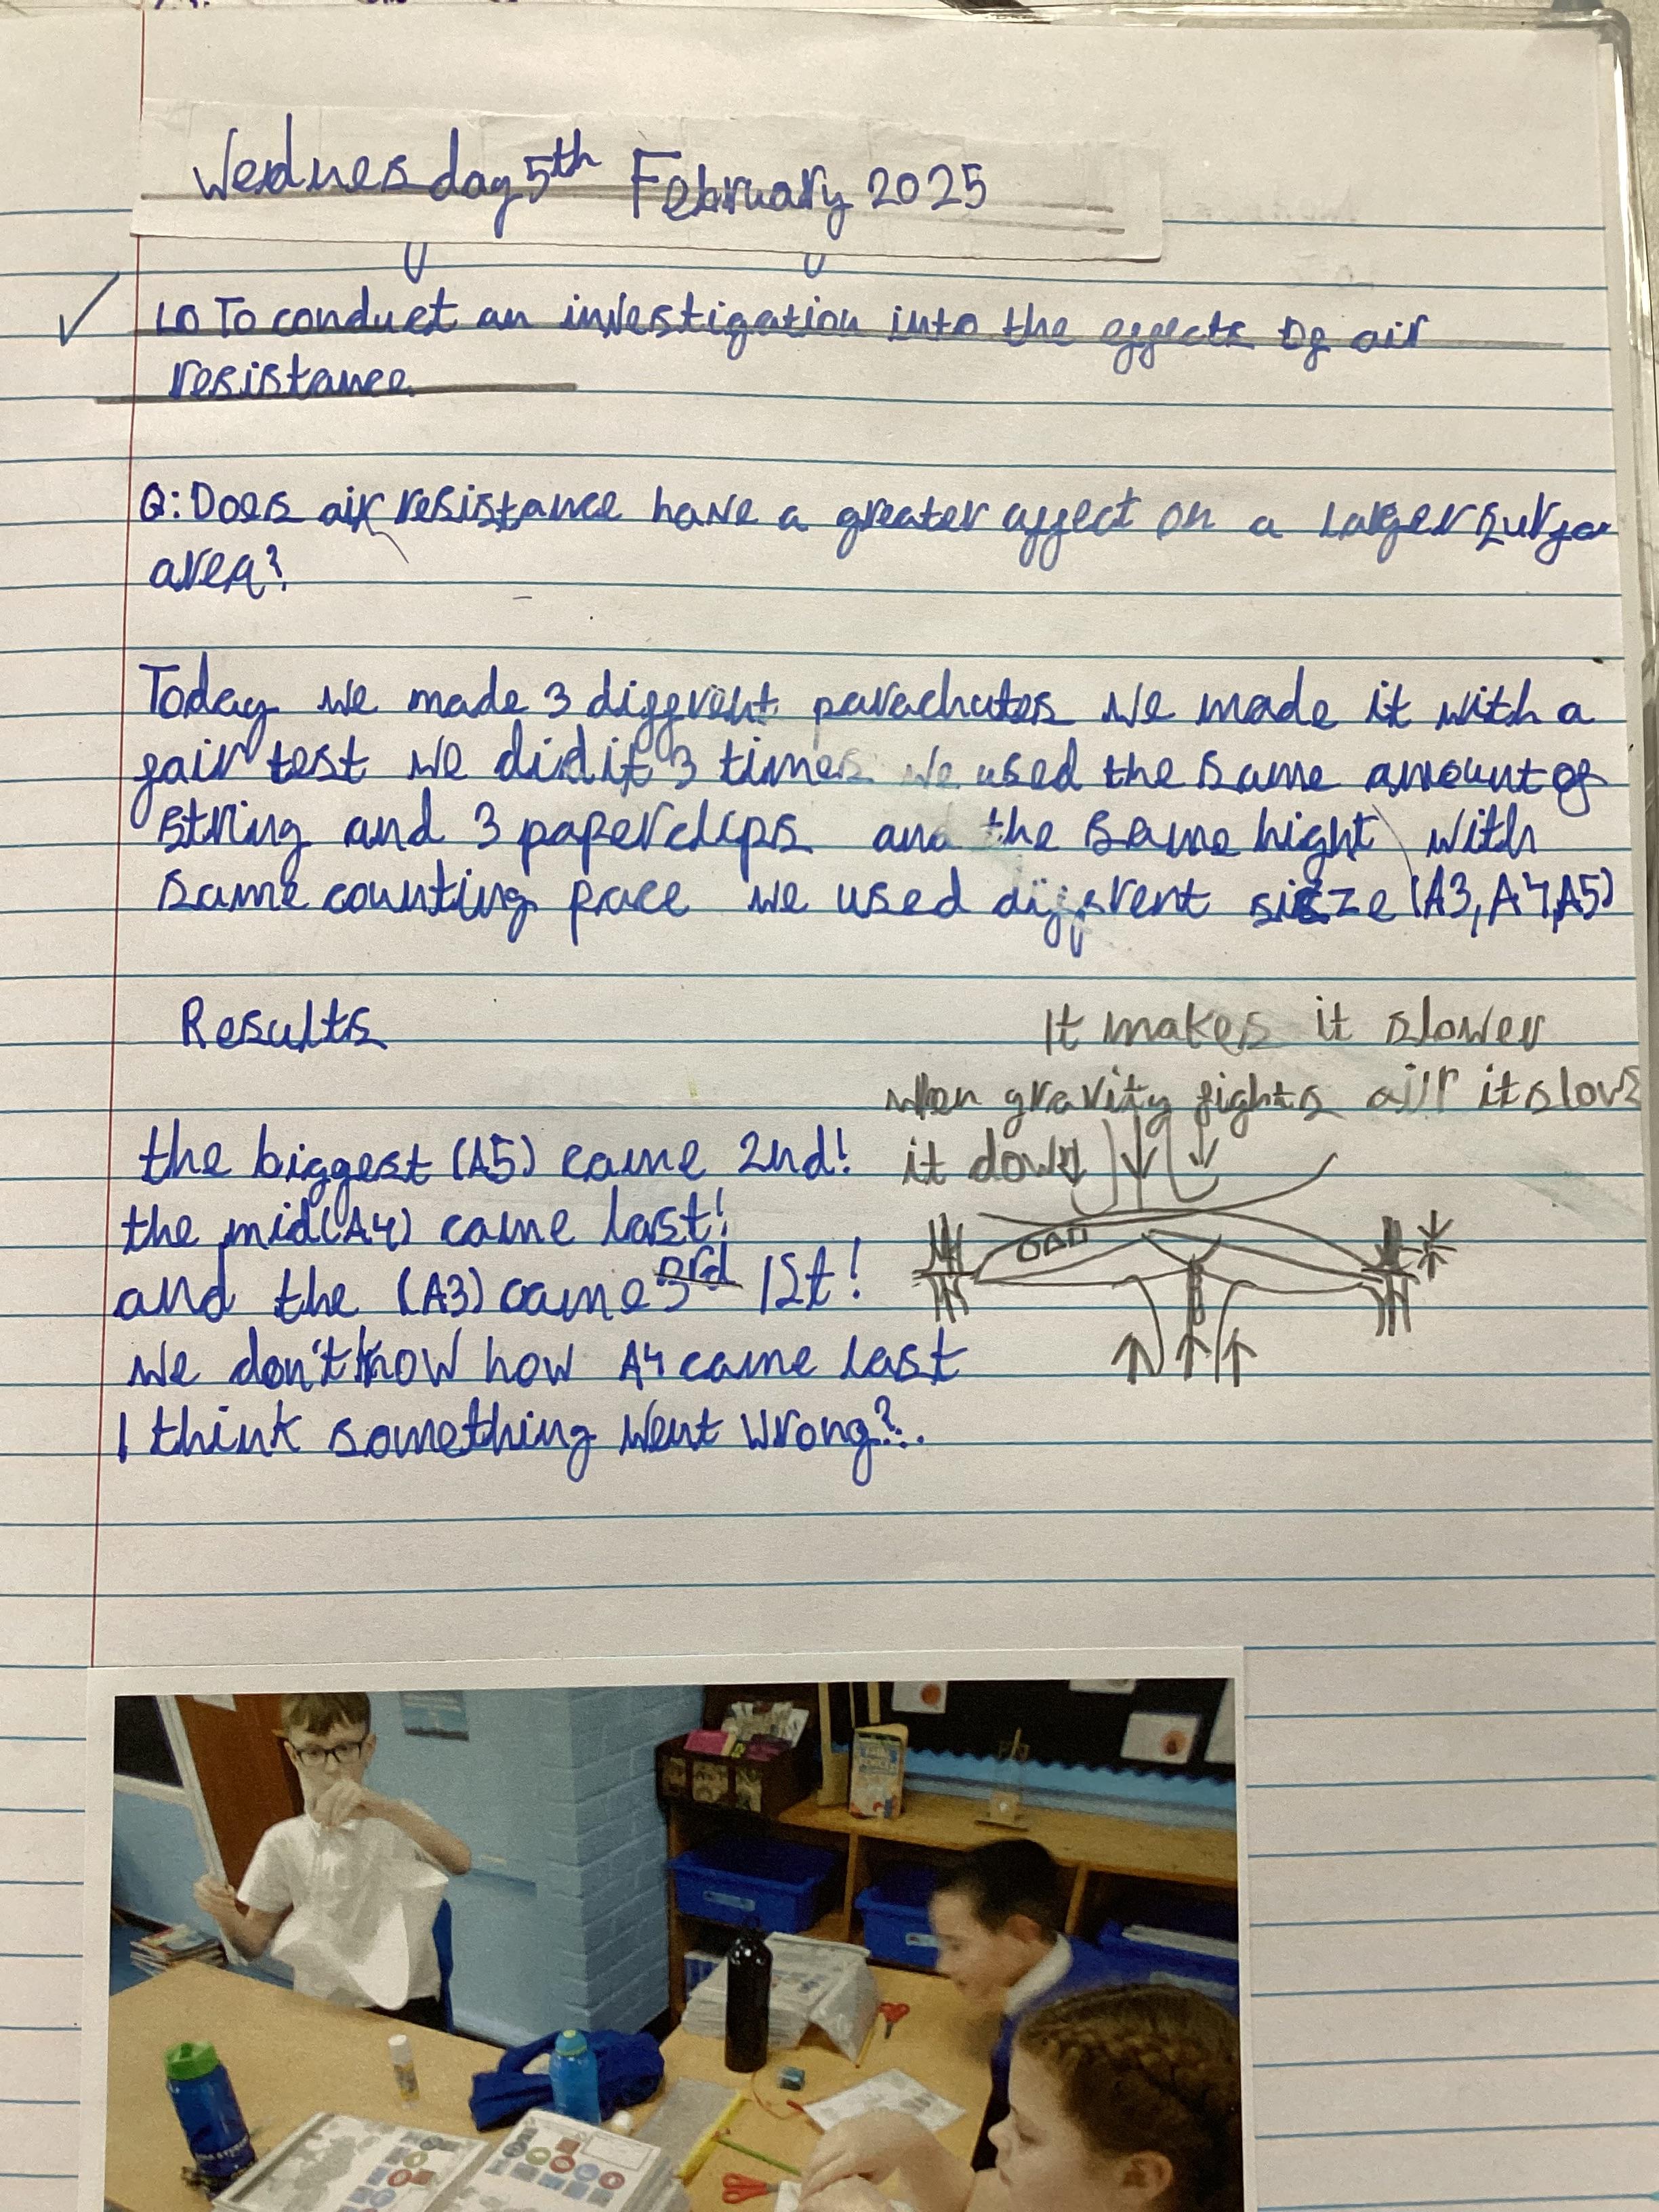 Wednesday 5th February 2025
LO To conduct an investigation into the effects of air
resistance.
Q: Does air resistance have a greater affect on a larger surfa
area?
Today we made 3 diffrent parachutes we made it with a
fair test we did it 3 times we used the same amount of
string and 3 paperclips and the same hight with
same counting pace we used diffrent size (A3, A4, A5)
Results
It makes it slower
when gravity fights air it slows
it down
the biggest (A5) came 2nd!
the mid (A4) came last!
and the (A3) came 3rd 1st!
we don't know how A4 came last
I think something went wrong?..